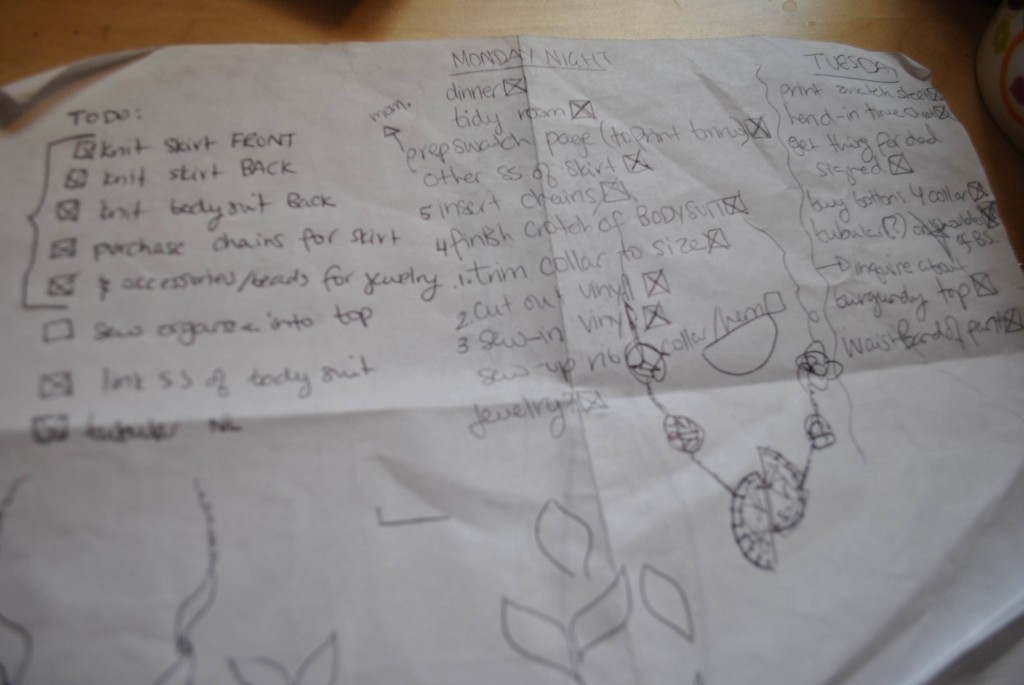 TODO:
knit skirt FRONT
knit skirt BACK
knit body suit Back
purchase chains for skirt
& accessories/beads for jewelry
sew organza into top
link SS of body suit
tubular NL
mon.
MONDAY NIGHT
dinner
tidy room
prep swatch page (to print tmrw)
other SS of skirt
5 insert chains
4 finish crotch of BODYSUIT
1. trim collar to size
2 cut out vinyl
3 sew-in vinyl
sew-up collar/hem
jewelry?
TUESDAY
print swatch sheet
hand-in time sheet
get thing for dad
signed
buy buttons 4 collar
tubular(?) on
of BS.
inquire about
burgundy top
waistband of pants